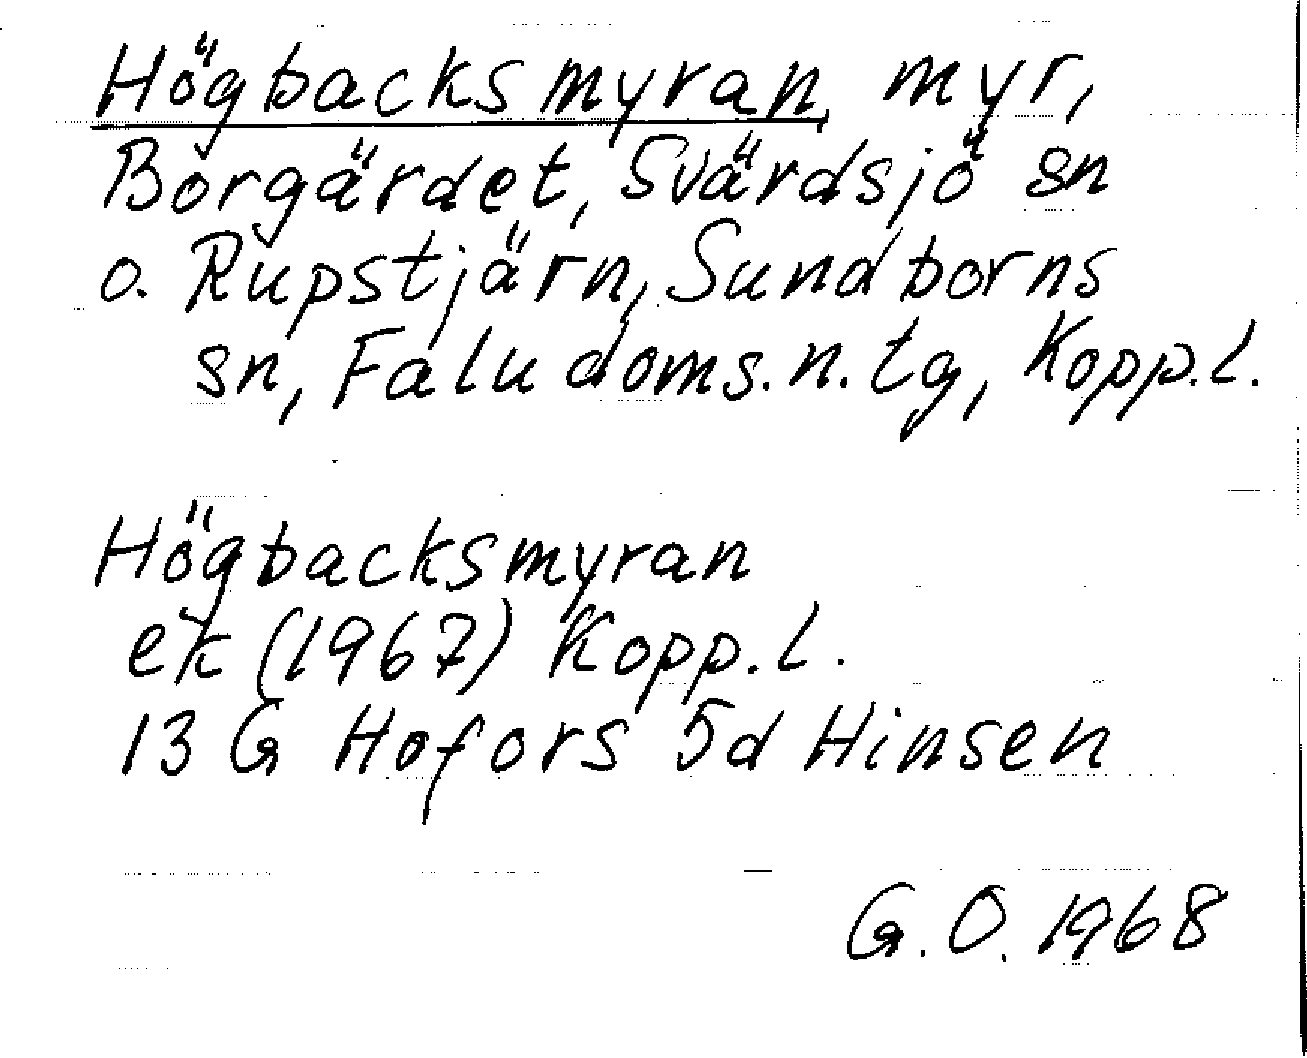 Högbacksmyran, myr,
Borgärdet, Svärdsjö sn
o. Rupstjärn, Sundborns
sn, Falu doms. n. tg, Kopp. l.
Högbacksmyran
ek (1967) Kopp. l.
13 G Hofors 5d Hinsen
G. O. 1968